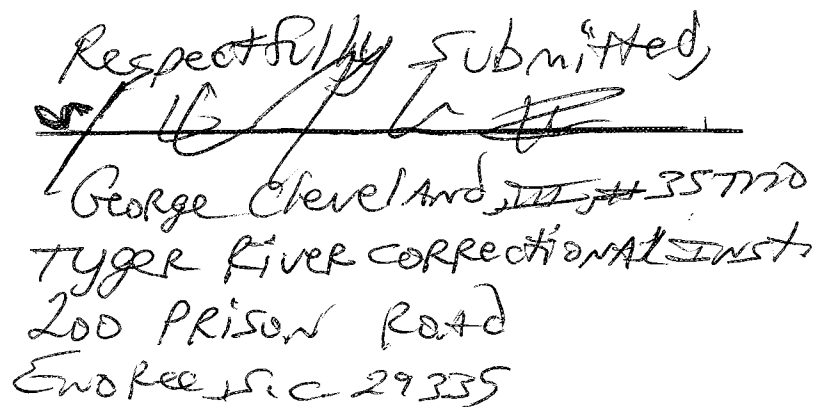 Respectfully Submitted,
George Cleveland, III, #
Tyger River Correctional Inst.
200 Prison Road
Enoree, S.C 29335